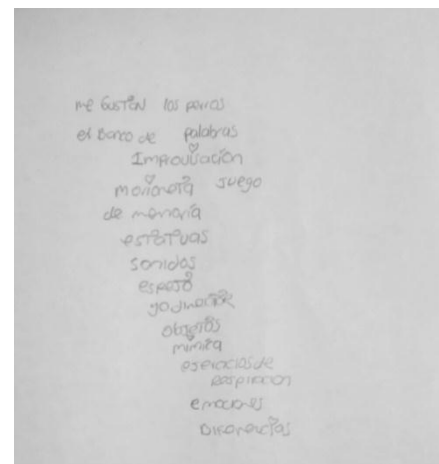 me GUSTAN los perros
el Banco de palabras
Improvización
marioneta juego
de memoria
estatuas
sonidos
espejo
objetos
mimica
ejerciciosde
Respiracion
emociones
Diferencias